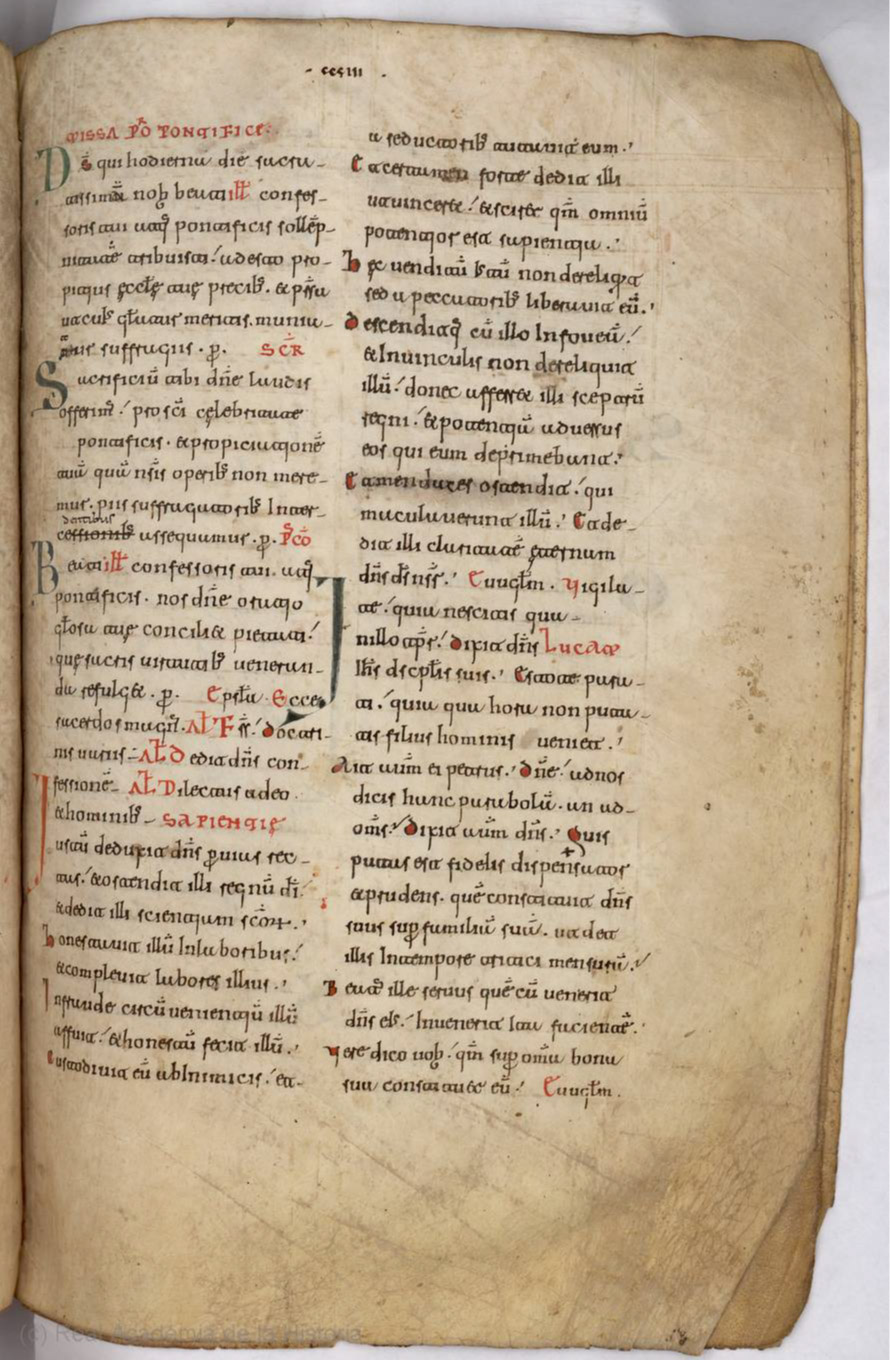 · ccciii ·
MISSA P̄O PONTIFICE.
Ds̄ qui hodiernā diē sacra-
tissimā nob beati ill̄ confes-
soris tui atq; pontificis sollēp-
nitatē tribuisti: adesto pro-
pitius ęcclę tuę precib. & p̄sta
ut cui gl̄atur meritis. muniatur suffragiis. p.
SCR̄
Sacrificiū tibi dn̄e laudis
offerim: pro sc̄i celebritate
pontificis. & propitiationē
tuā quā nr̄is operib non mere-
mur. piis suffragatorib inter-
dantibus
cessionib assequamur. p. P̄cō
Beati ill̄ confessoris tui. atq;
pontificis. nos dn̄e oratio
gl̄osa tuę conciliet pietati:
quę sacris virtutib veneran-
da refulget. p. Epsl̄a. Ecce
sacerdos magn̄. AL̄T F s̄s. docti-
nis variis- AL̄ Dedit dn̄s con-
fessionē- AL̄T Dilectus adeo
& hominib- SAPIENTIĘ
Iustū deduxit dn̄s p uias rec-
tas: & ostendit illi regnū dī.
& dedit illi scientiam scōꝝ.
honestauit illū In laboribus:
& compleuit labores illius.
In fraude circūuenientiū illū
affuit: & honestū fecit illū.
Custodiuit eū ab Inimicis: et
a seductorib tutauit eum.
Et certamen forte dedit illi
ut uinceret: & sciret qm̄ omniū
potentior est sapientia.
hęc uenditū iustū non dereliq̄t
sed a peccatorib liberauit eū.
descenditq; cū illo In foueā:
& In uinculis non dereliquit
illū: donec afferret illi sceptrū
regni: & potentiā aduersus
eos qui eum deprimebant.
Et mendaces ostendit: qui
maculauerunt illū. Et de-
dit illi claritatē ęternam
dn̄s ds̄ nr̄. Euugl̄m. Vigila-
te: quia nescitis qua
In illo tp̄r: dixit dn̄s Lucae
Ihs̄ dscpl̄is suis. Estote para-
ti: quia qua hora non puta-
tis filius hominis ueniet.
Ait autm̄ ei petrus. dn̄e: ad nos
dicis hanc parabolā. an ad
om̄s: Dixit autm̄ dn̄s. Quis
putas est fidelis dispensator
& prudens. quē constituit dn̄s
suus sup familiā suā. ut det
illis In tempore tritici mensurā.
Beatꝰ ille seruus quē cū uenerit
dn̄s eiꝰ: Inuenerit ita facientē.
Vere dico uob: qm̄ sup omīa bona
sua constituet eū: Euugl̄m.
(c) Real Academia de la Historia